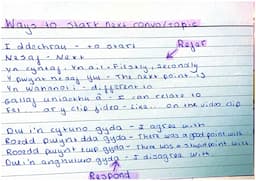 Ways to start next convo/topic
I ddechrau - to start
Refer
Nesaf - Next
Yn cyntaf, Yn ail - Firstly, Secondly
Y pwynt nesaf yw - The next point is
Yn wahanol i - different to
Gallaf uniaethu â - I can relate to
Fel ar y clip fideo - Like... on the video clip
Dwi'n cytuno gyda - I agree with
Roedd pwynt dda gyda - There was a good point with
Roedd pwynt twp gyda - There was a stupid point with
Dwi'n anghytuno gyda - I disagree with
Respond